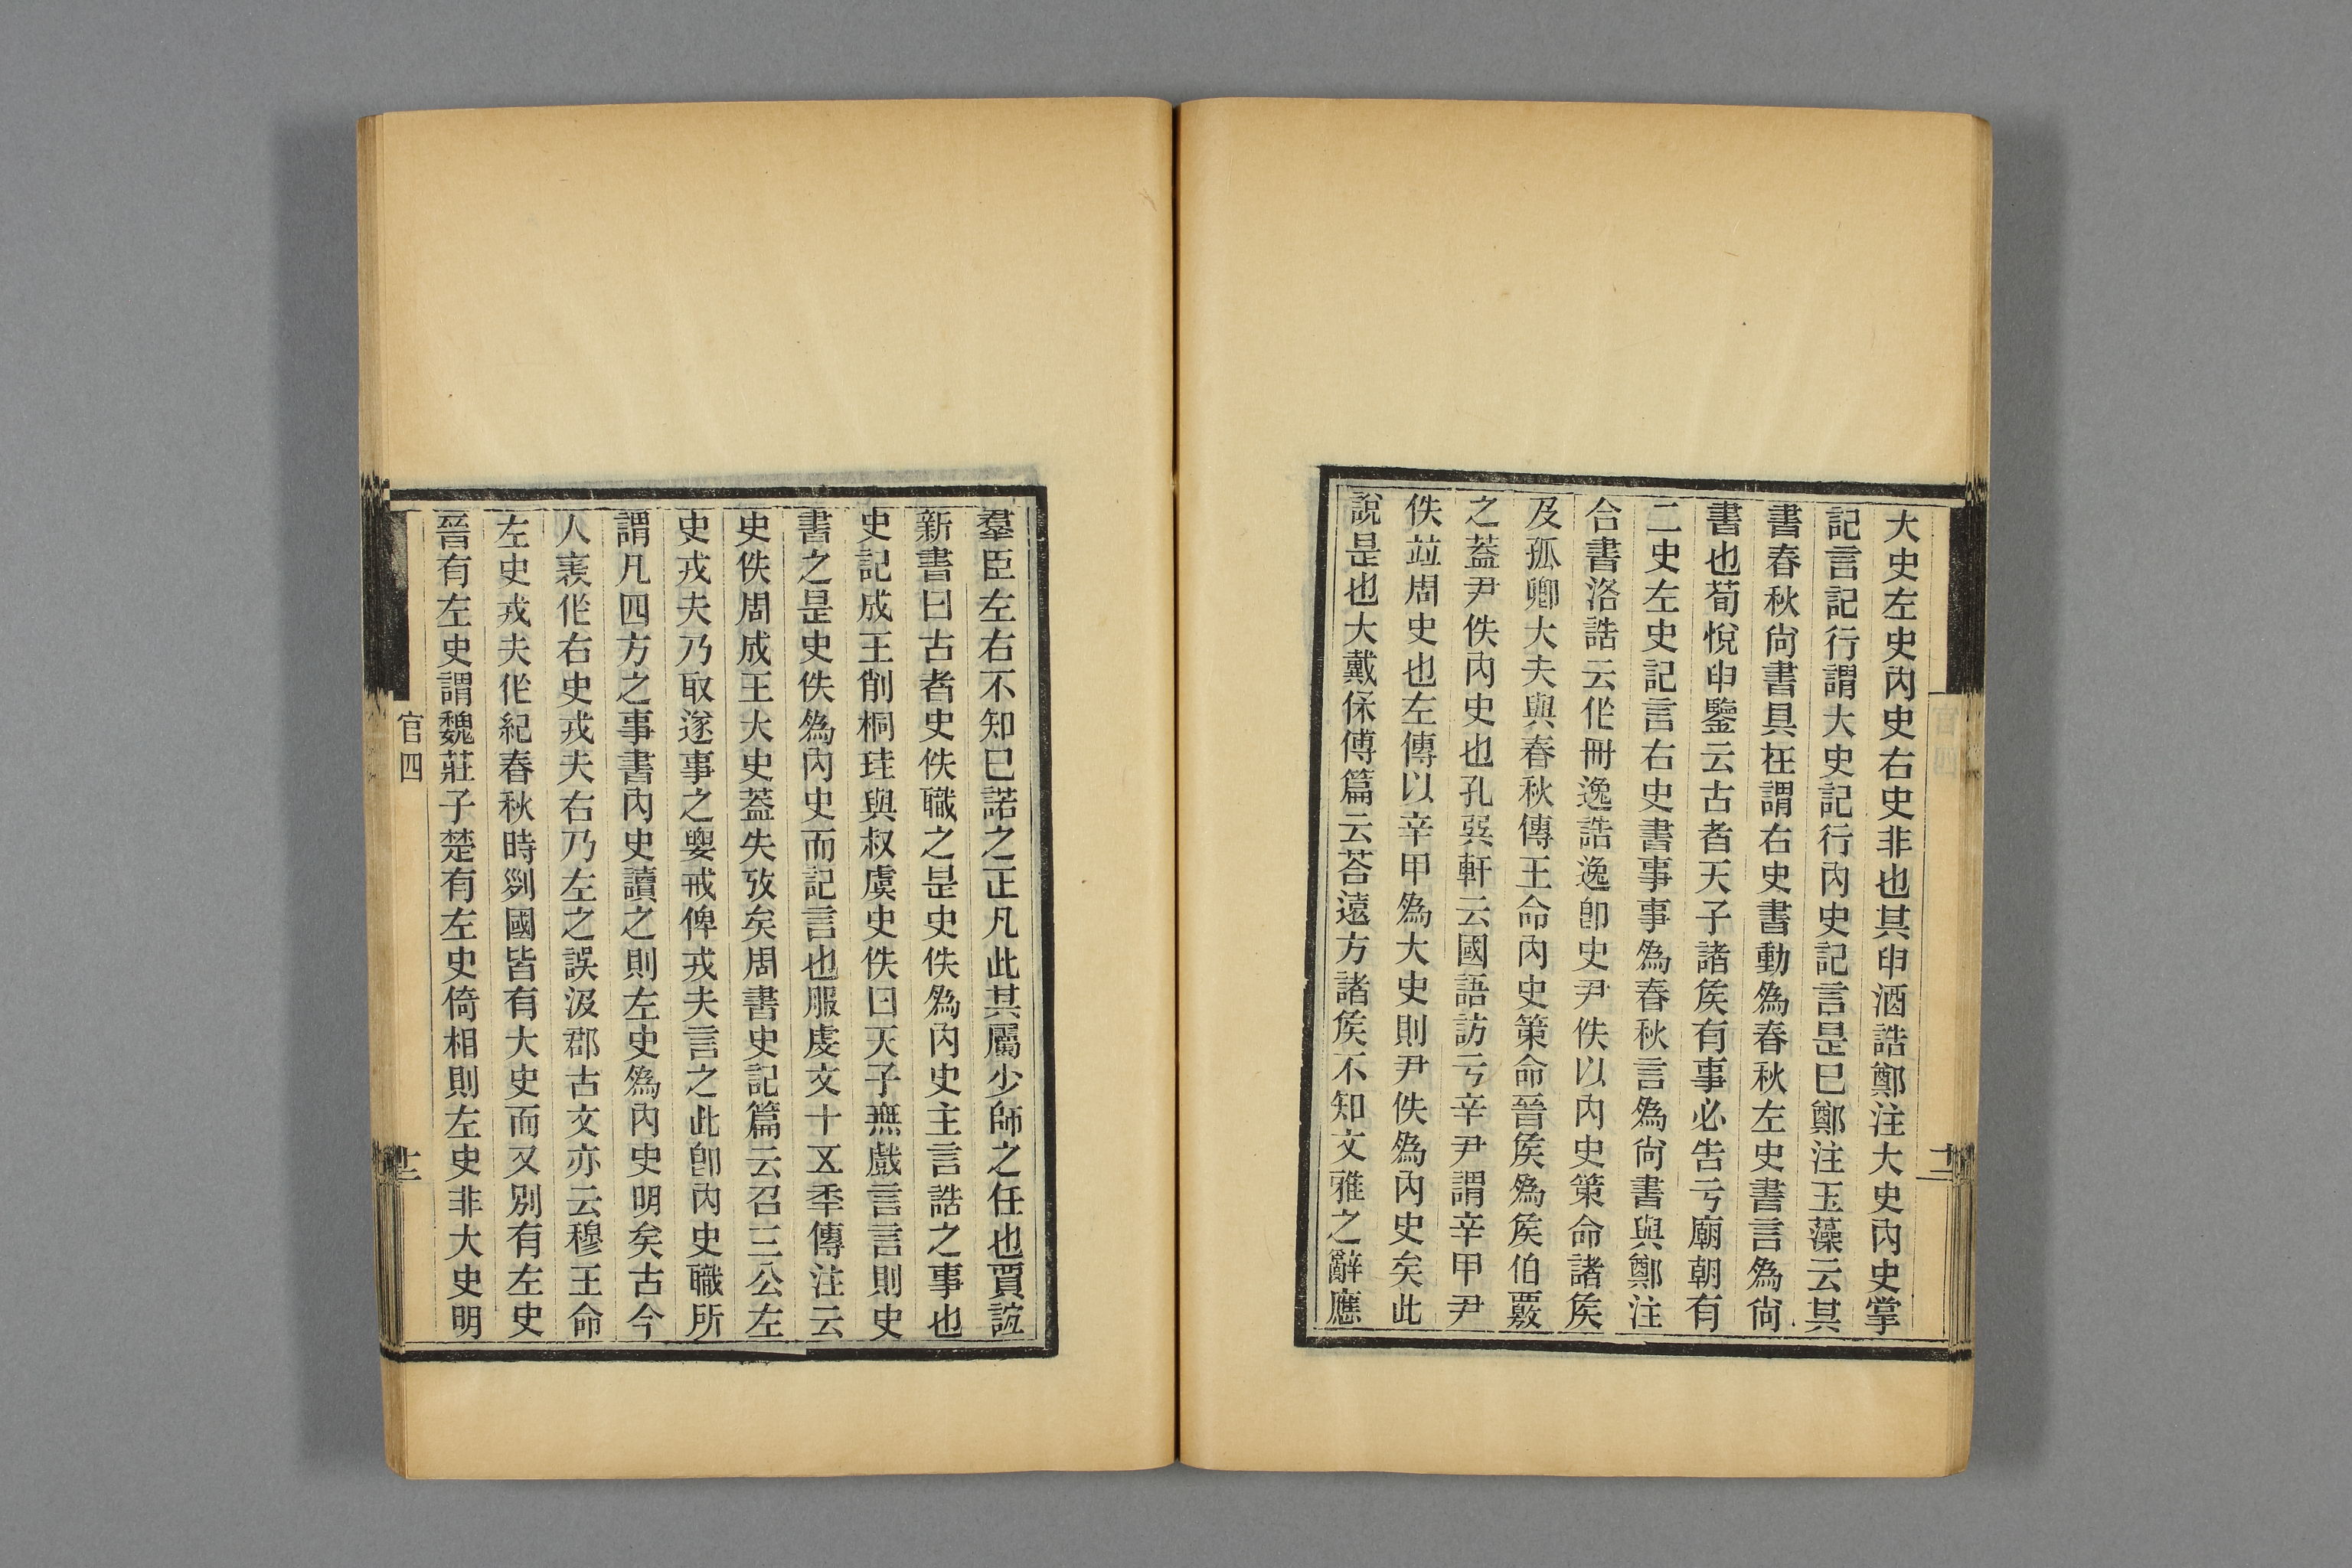 大史左史內史右史非也其申酒誥鄭注大史內史掌
記言記行謂大史記行內史記言是巳鄭注玉藻云其
書春秋尙書具在謂右史書動爲春秋左史書言爲尙
書也荀悅申鑒云古者天子諸矦有事必告亏廟朝有
二史左史記言右史書事事爲春秋言爲尙書與鄭注
合書洛誥云作冊逸誥逸卽史尹佚以內史策命諸矦
及孤卿大夫與春秋傳王命內史策命晉矦爲矦伯覈
之蓋尹佚內史也孔㢲軒云國語訪亏辛尹謂辛甲尹
佚竝周史也左傳以辛甲爲大史則尹佚爲內史矣此
說是也大戴保傅篇云荅遠方諸矦不知文雅之辭應
羣臣左右不知已諾之正凡此其屬少師之任也賈誼
新書曰古者史佚職之是史佚爲內史主言誥之事也
史記成王削桐珪與叔虞史佚曰天子無戲言言則史
書之是史佚爲內史而記言也服虔文十五秊傳注云
史佚周成王大史蓋失攷矣周書史記篇云召三公左
史戎夫乃取遂事之要戒俾戎夫言之此卽內史職所
謂凡四方之事書內史讀之則左史爲內史明矣古今
人表作右史戎夫右乃左之誤汲郡古文亦云穆王命
左史戎夫作紀春秋時列國皆有大史而又別有左史
晉有左史謂魏莊子楚有左史倚相則左史非大史明
官四
十二